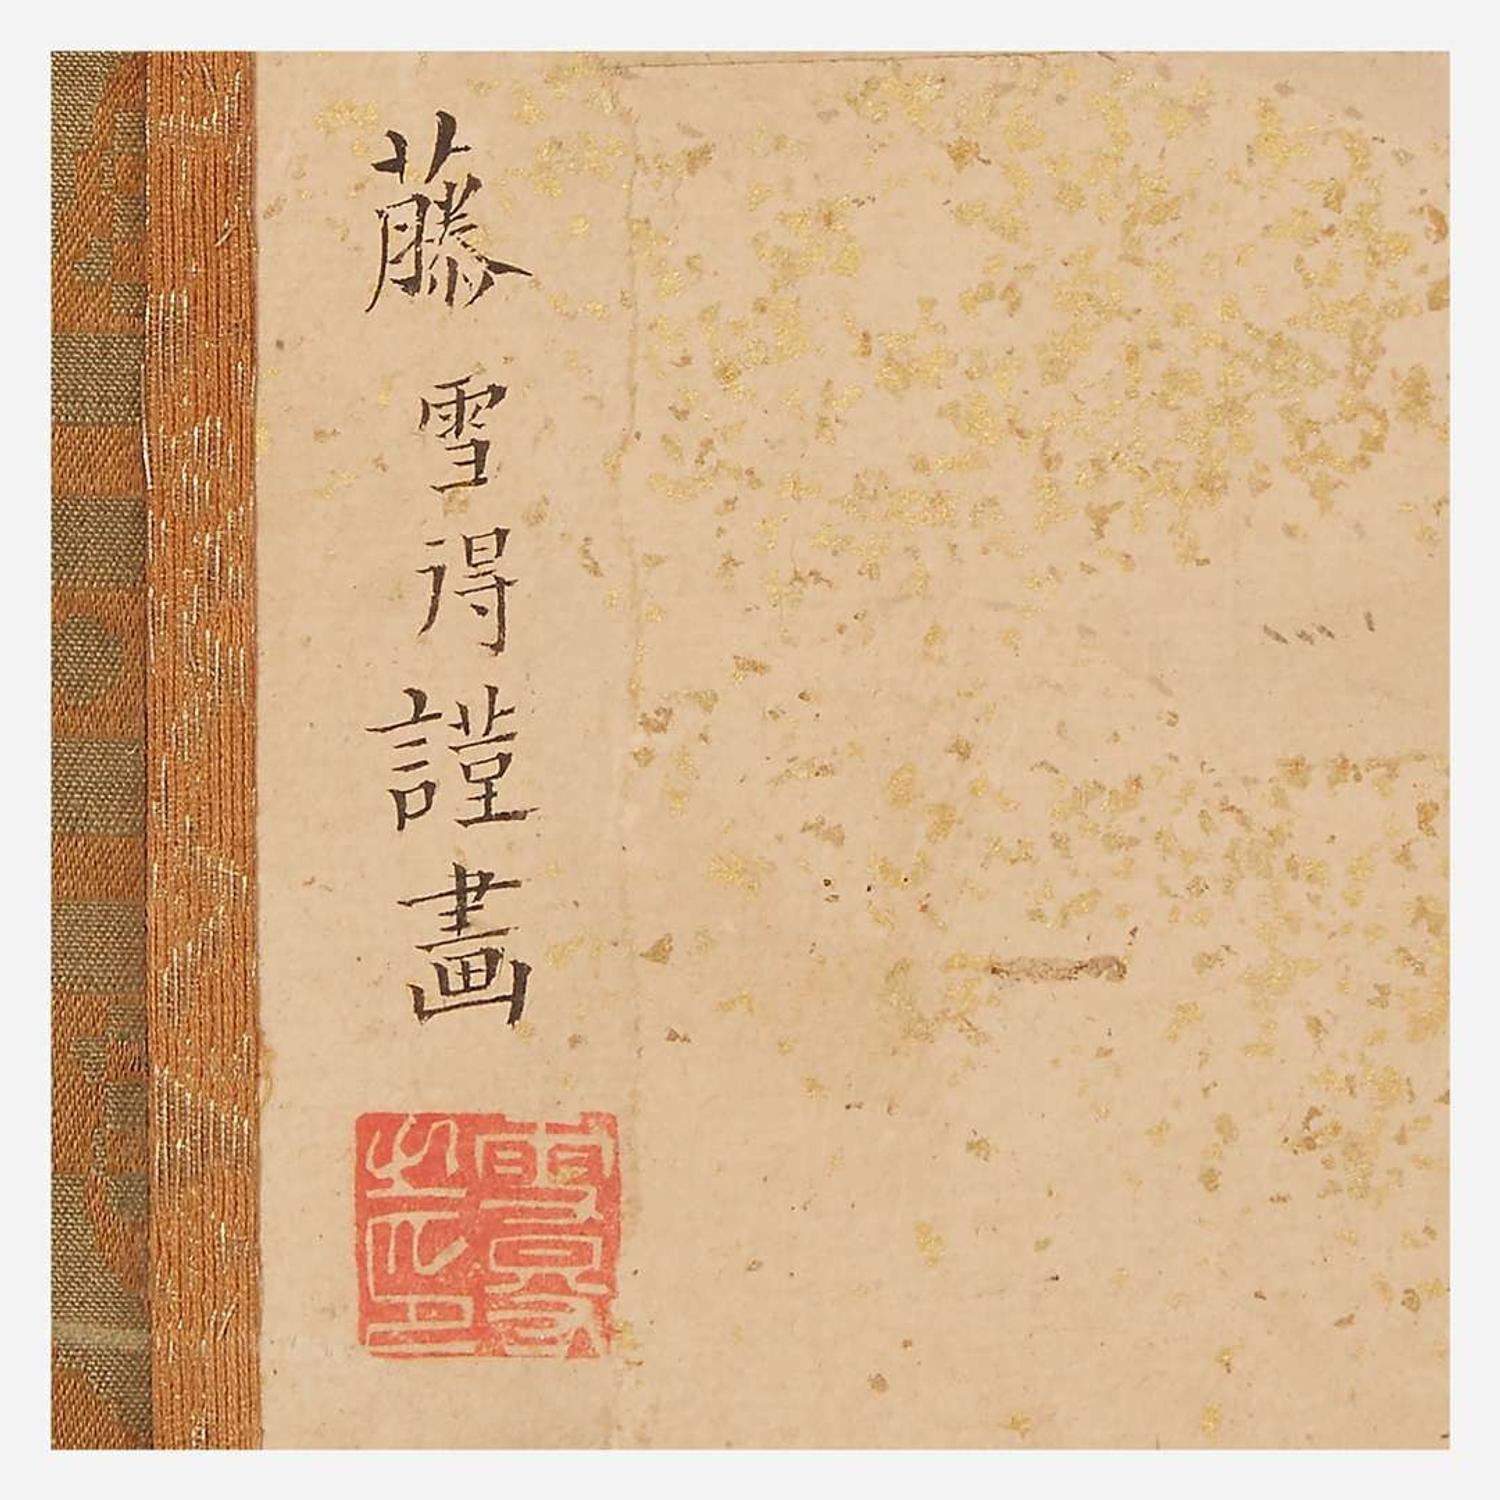 藤雪得謹畫